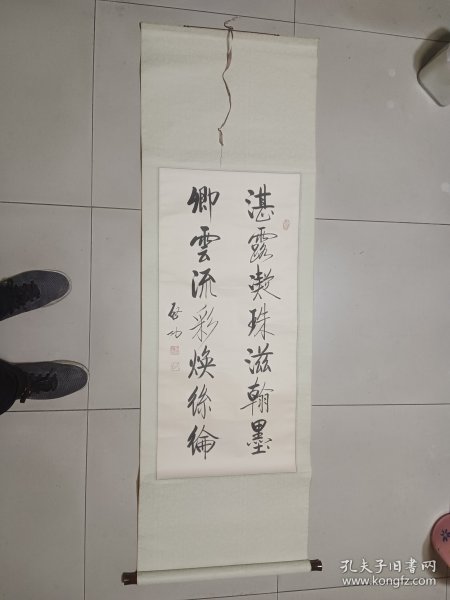 湛露敷珠滋翰墨
卿雲流彩焕絲綸
啟功
孔夫子旧书网
www.kongfz.com